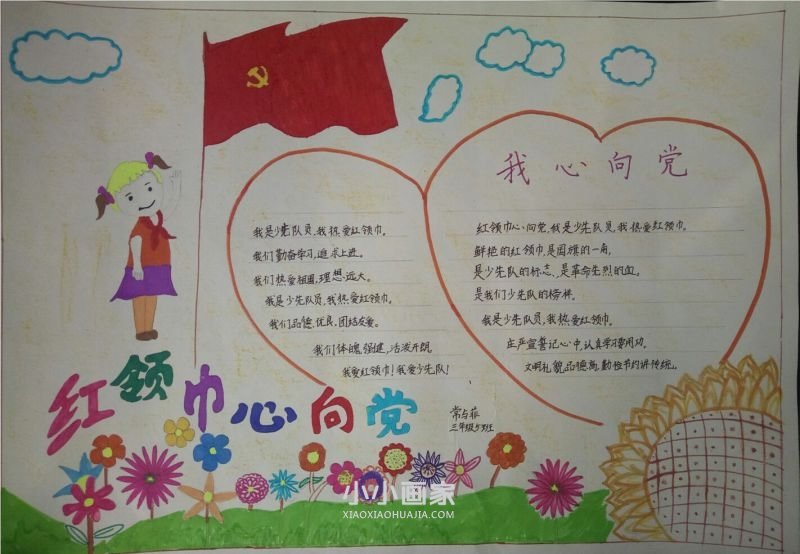 我心向党
我是少先队员,我热爱红领巾。
我们勤奋学习,追求上进。
我们热爱祖国,理想远大。
我是少先队员,我热爱红领巾。
我们品德优良,团结友爱。
我们体魄强健,活泼开朗。
我爱红领巾!我爱少先队!
红领巾心向党,我是少先队员,我热爱红领巾。
鲜艳的红领巾,是国旗的一角,
是少先队的标志、是革命先烈的血。
是我们少先队的榜样。
我是少先队员,我热爱红领巾。
庄严宣誓记心中,认真学习要用功。
文明礼貌品德高,勤俭节约讲传统。
红领巾心向党
三年级5班
小小画家
XIAOXIAOHUAJIA.COM